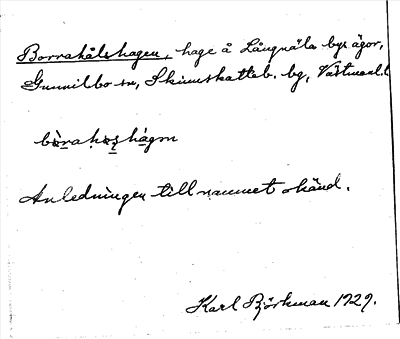 Borrakålshagen, hage å Långnäla bys ägor,
Gunnilbo sn, Skinnskatteb. bg, Västmanl.
bòrakoshágɔn
Anledningen till namnet okänd.
Karl Björkman 1929.